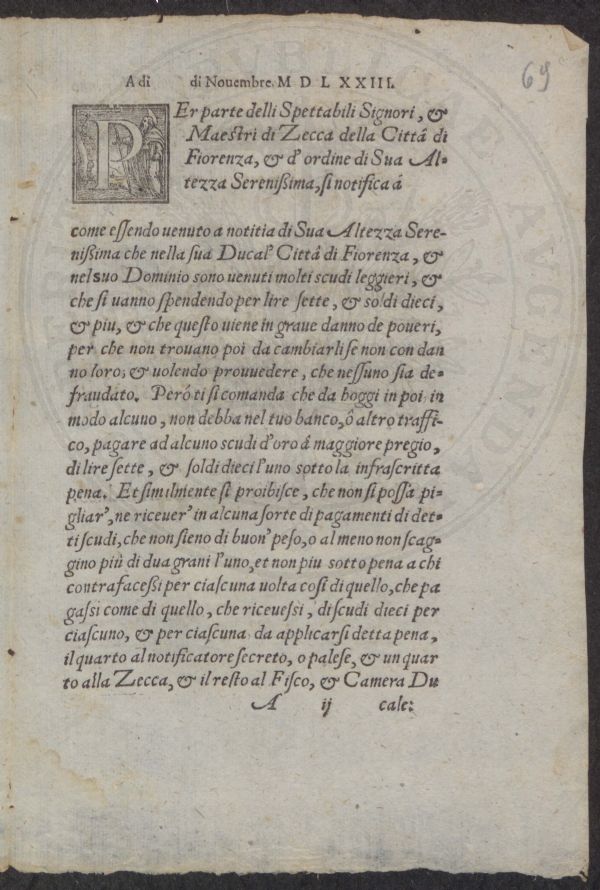 69
A di di Nouembre. M D L XXIII.
PEr parte delli Spettabili Signori, &
Maestri di Zecca della Cittá di
Fiorenza, & d'ordine di Sua Al-
tezza Sereniſsima, ſi notifica á
come eſſendo uenuto a notitia di Sua Altezza Sere-
niſsima che nella ſua Ducal' Cittá di Fiorenza, &
nel suo Dominio sono uenuti molti scudi leggieri, &
che ſi uanno ſpendendo per lire ſette, & soldi dieci,
& piu, & che queſto uiene in graue danno de poueri,
per che non trouano poi da cambiarli ſe non con dan
no loro; & uolendo prouuedere, che neſſuno ſia de-
fraudato. Peró ti ſi comanda che da hoggi in poi in
modo alcuno, non debba nel tuo banco, ó altro traffi-
co, pagare ad alcuno scudi d'oro á maggiore pregio,
di lire ſette, & ſoldi dieci l'uno sotto la infraſcritta
pena. Et ſimilmente ſi proibiſce, che non ſi poſſa pi-
gliar', ne riceuer' in alcuna ſorte di pagamenti di det-
ti scudi, che non ſieno di buon' peſo, o al meno non ſcag-
gino più di dua grani l'uno, et non piu sotto pena a chi
contrafaceſsi per ciaſcuna uolta coſi di quello, che pa
gaſsi come di quello, che riceueſsi, di ſcudi dieci per
ciaſcuno, & per ciaſcuna da applicarſi detta pena,
il quarto al notificatore ſecreto, o paleſe, & un quar
to alla Zecca, & il reſto al Fiſco, & Camera Du
A ij cale: